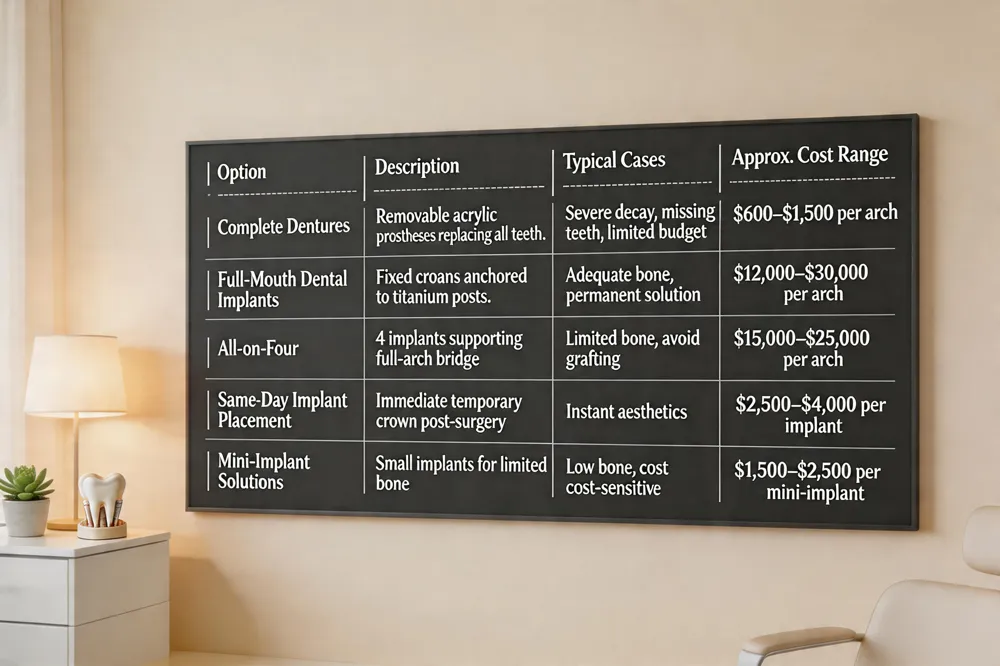 Option
Description
Typical Cases
Approx. Cost Range
Complete Dentures
Removable acrylic
prostheses replacing all teeth.
Severe decay, missing
teeth, limited budget
$600–$1,500 per arch
Full-Mouth Dental
Implants
Fixed croans anchored
to titanium posts.
Adequate bone,
permanent solution
$12,000–$30,000
per arch
All-on-Four
4 implants supporting
full-arch bridge
Limited bone, avoid
grafting
$15,000–$25,000
per arch
Same-Day Implant
Placement
Immediate temporary
crown post-surgery
Instant aesthetics
$2,500–$4,000 per
implant
Mini-Implant
Solutions
Small implants for limited
bone
Low bone, cost
cost-sensitive
$1,500–$2,500 per
mini-implant